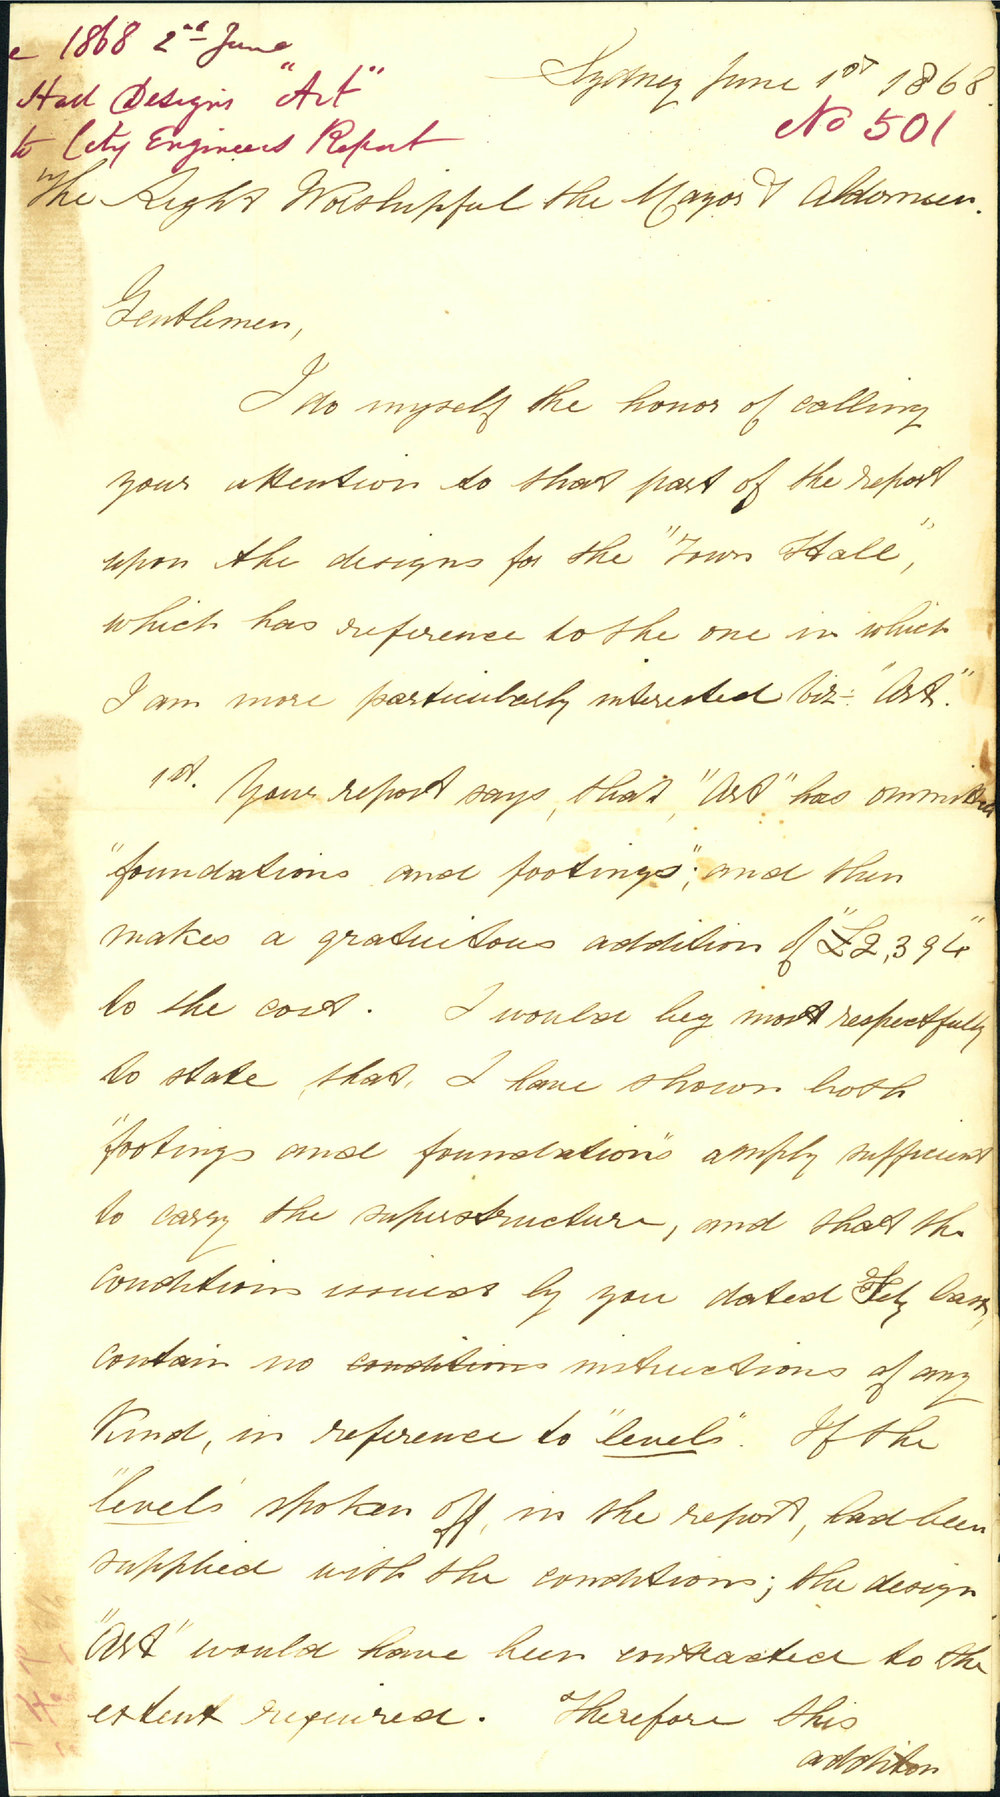 1868 2nd June
Hall Designs "Art"
to City Engineers Report
Sydney June 1st 1868.
No 501
The Right Worshipful the Mayor & Aldermen.
Gentlemen,
I do myself the honor of calling
your attention to that part of the report
upon the designs for the "Town Hall",
which has reference to the one in which
I am more particularly interested viz:- "Art".
1st. Your report says, that, "Art" has ommitted
"foundations and footings"; and then
makes a gratuitous addition of "£2,394"
to the cost. I would beg most respectfully
to state, that, I have shown both
"footings and foundations" amply sufficient
to carry the superstructure, and that the
conditions issued by you dated Feby last,
contain no conditions instructions of any
kind, in reference to "levels". If the
"levels" spoken off, in the report, had been
supplied with the conditions; the design
"Art" would have been contracted to the
extent required. Therefore this
addition